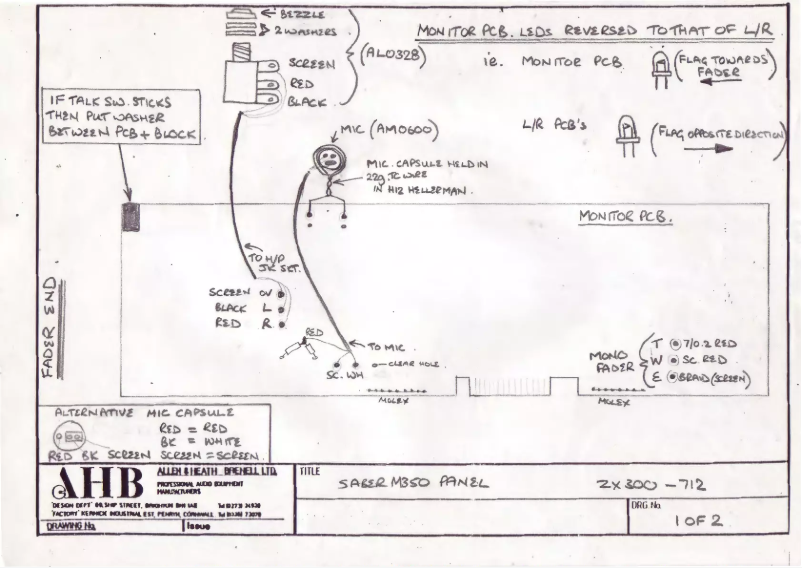 BEZZLE
2 WASHERS
(AL0328)
SCREEN
RED
BLACK
MONITOR PCB. LEDS REVERSED TO THAT OF L/R
ie. MONITOR PCB
(FLAG TOWARDS
FADER
L/R PCB's
(FLAG OPPOSITE DIRECTION)
IF TALK SW. STICKS
THEN PUT WASHER
BETWEEN PCB + BLOCK.
MIC (AM0600)
MIC. CAPSULE HELD IN
22g. TC WIRE
IN H12 HELLERMAN.
MONITOR PCB.
TO H/P
JK SKT.
SCREEN 0V
BLACK L
RED R
FADER END
RED
TO MIC
SC. WH
CLEAR HOLE.
MOLEX
MOLEX
MONO
FADER
T 7/0.2 RED
W SC RED
E BRAID (SCREEN)
ALTERNATIVE MIC CAPSULE
RED = RED
BK = WHITE
RED BK SCREEN SCREEN = SCREEN.
AHB
ALLEN & HEATH BRENELL LTD.
PROFESSIONAL AUDIO EQUIPMENT
MANUFACTURERS
DRAWING No.
Issue
TITLE
SABER M350 PANEL
ZX300-712
DRG. No.
1 OF 2